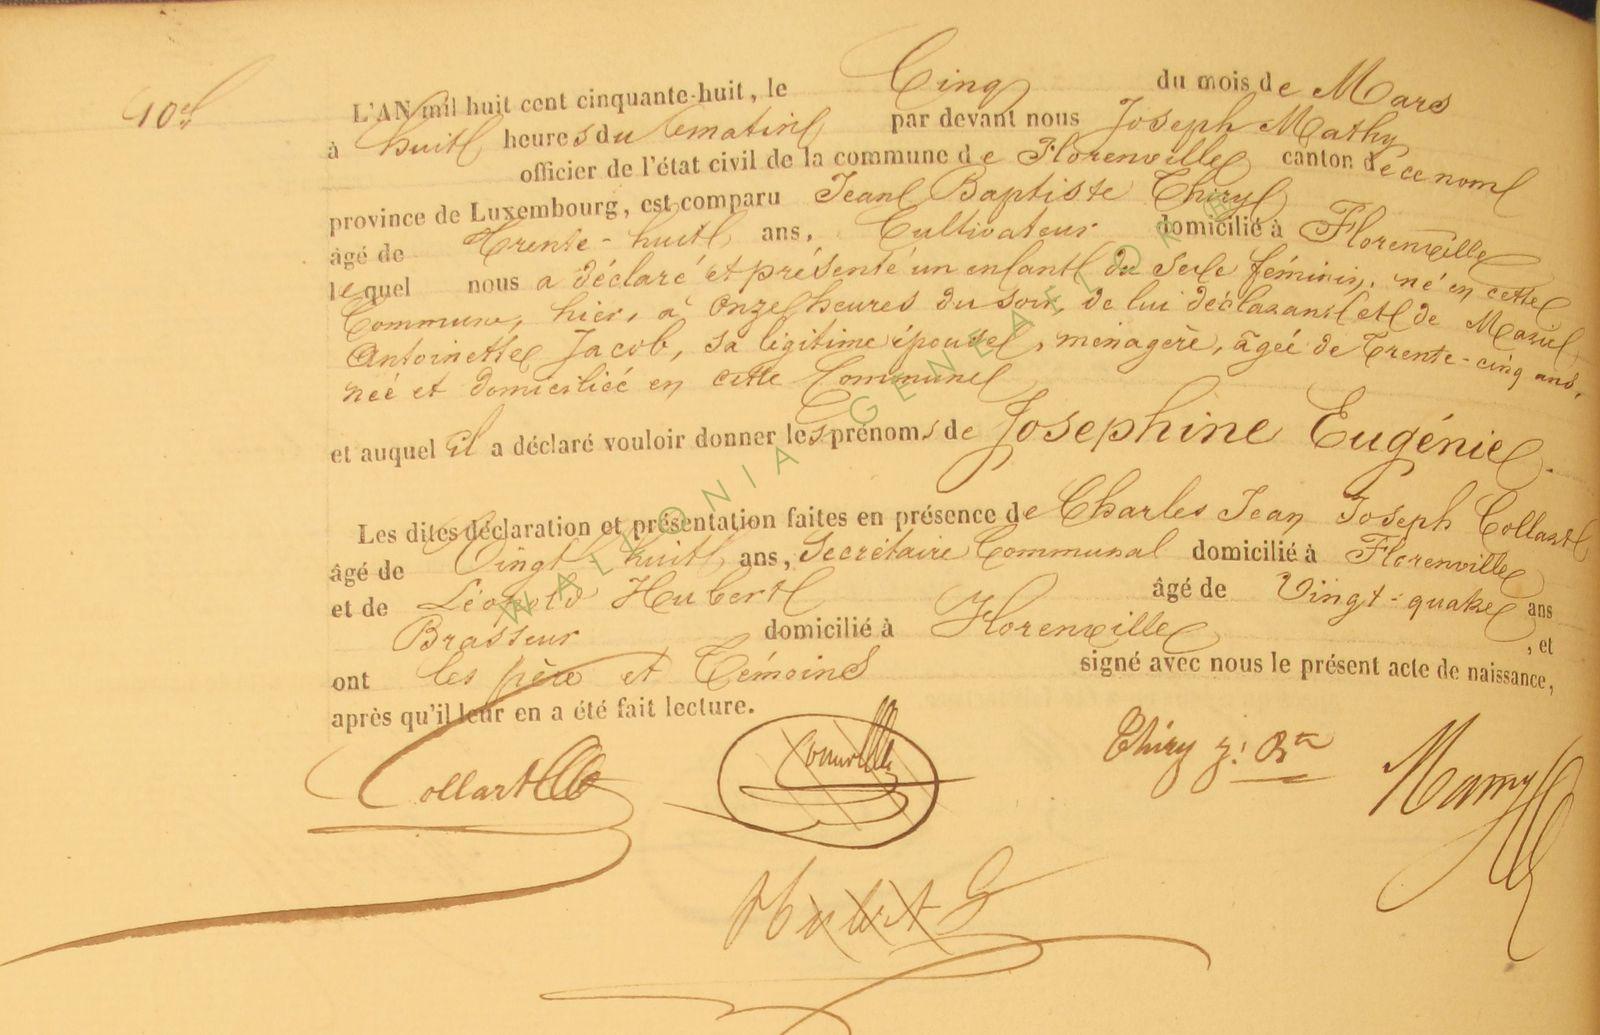 10e
L'AN mil huit cent cinquante-huit, le Cinq du mois de Mars
à huit heures du le matin par devant nous Joseph Mathy
officier de l'état civil de la commune de Florenville canton de ce nom
province de Luxembourg, est comparu Jean Baptiste Thiry
âgé de Trente-huit ans, Cultivateur domicilié à Florenville
lequel nous a déclaré et présenté un enfant du sexe féminin, né en cette
Commune, hier, à Onze heures du soir, de lui déclarant et de Marie
Antoinette Jacob, sa légitime épouse, ménagère, âgée de Trente-cinq ans,
née et domiciliée en cette Commune
et auquel il a déclaré vouloir donner les prénoms de Josephine Eugénie.
Les dites déclaration et présentation faites en présence de Charles Jean Joseph Collart
âgé de Vingt huit ans, Secrétaire Communal domicilié à Florenville
et de Léopold Hubert âgé de Vingt-quatre ans
Brasseur domicilié à Florenville, et
ont les père et Témoins signé avec nous le présent acte de naissance,
après qu'il leur en a été fait lecture.
Collart Thiry j: Bte
Hubert
WALLONIA GENEALOR